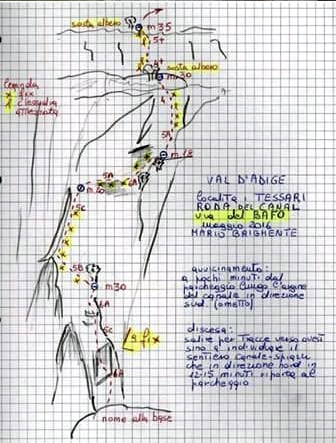 sosta albero
m 35
5+
4+
sosta albero
m 30
4
Legenda
x fix
clessidra
attrezzata
5A
m 28
5A
6A
m 20
5c
5B
m 30
6A
6c
L2 fix
6A
nome alla base
VAL D'ADIGE
Località TESSARI
RODA DEL CANAL
via del BAFO
maggio 2016
MARIO BRIGHENTE
avvicinamento:
a pochi minuti dal
parcheggio lungo l'argine
del canale in direzione
sud (ometto)
discesa:
salire per tracce verso ovest
sino a individuare il
sentiero canale-spiazzi
che in direzione nord in
12-15 minuti riporta al
parcheggio